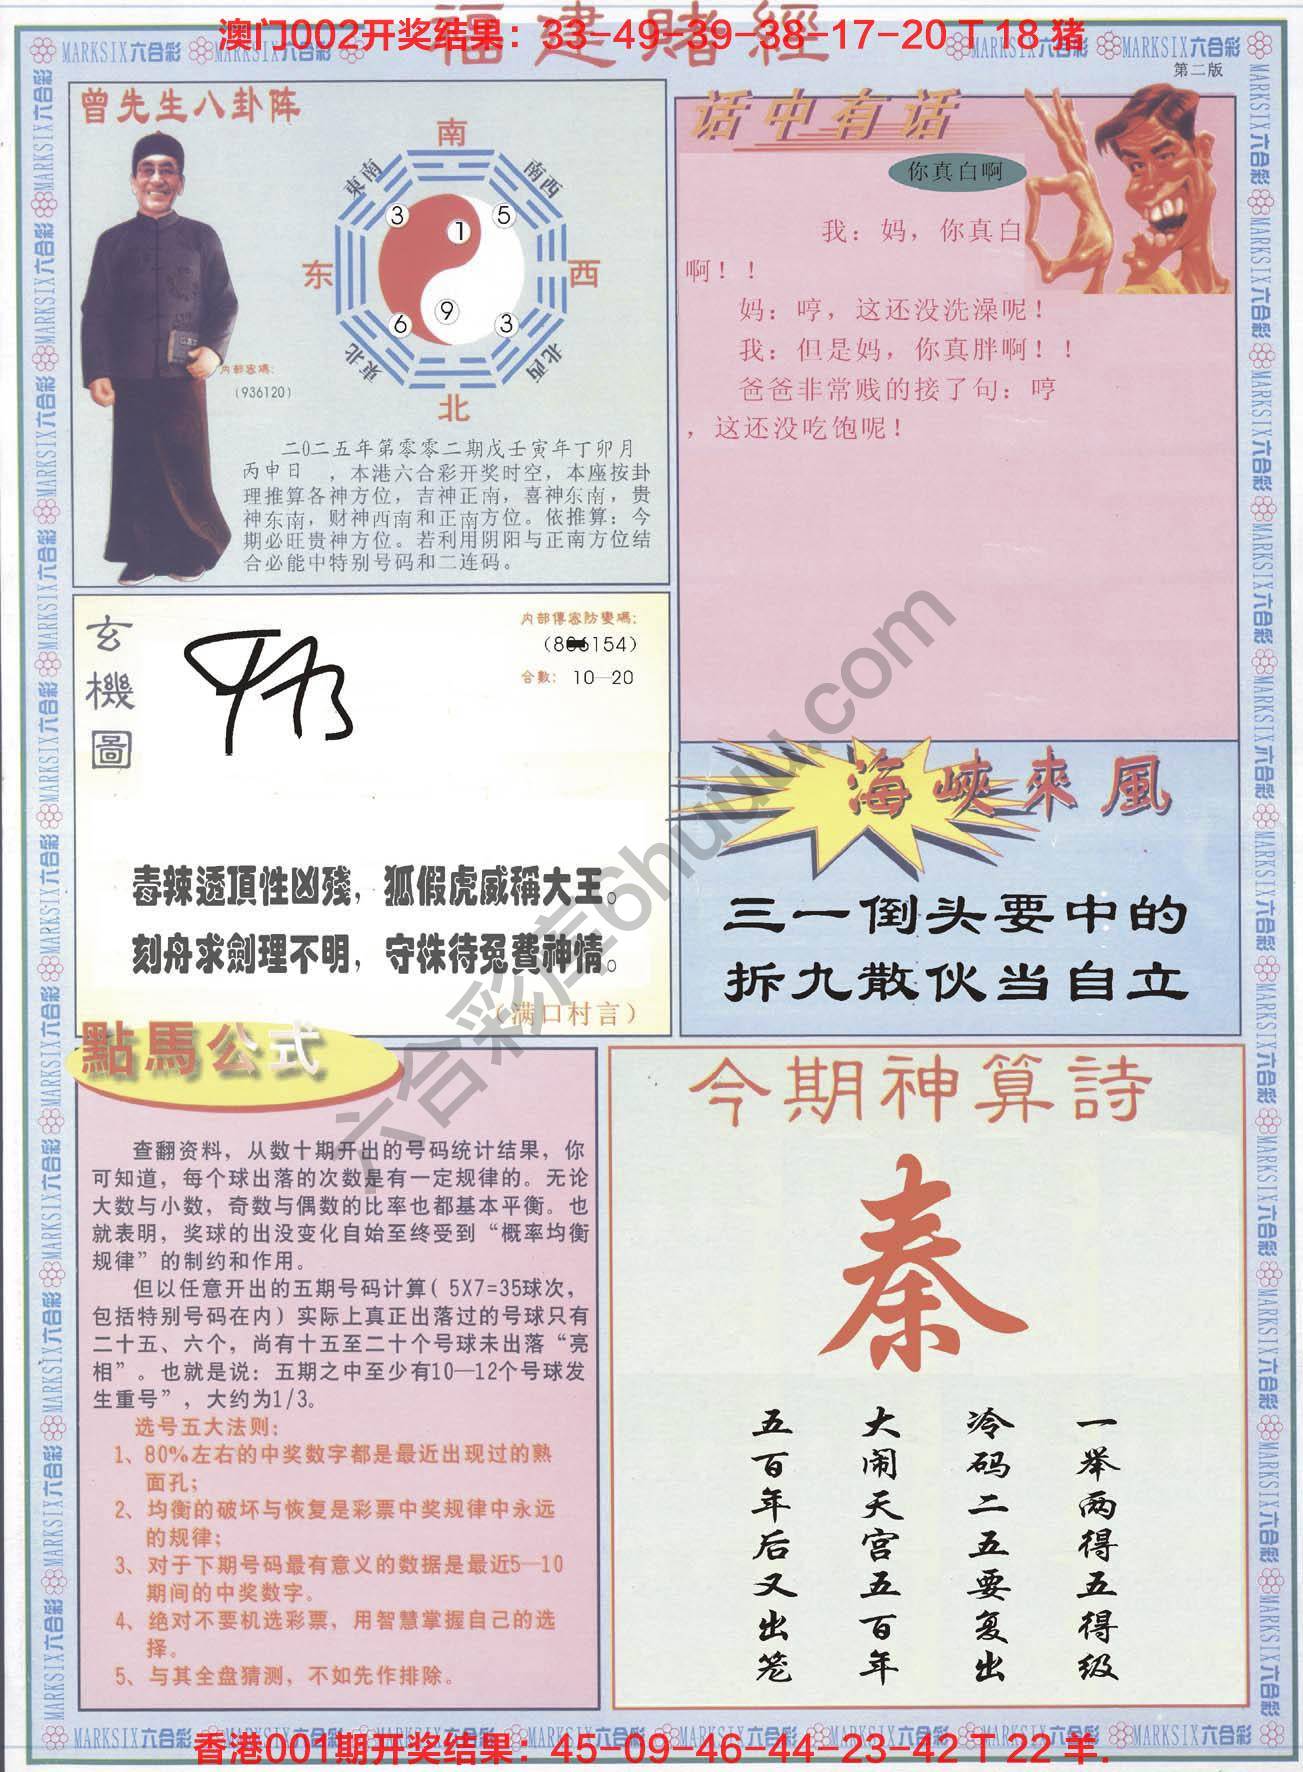 福建賭經
澳门002开奖结果：33-49-39-38-17-20 T 18 猪
第二版
MARKSIX六合彩
曾先生八卦阵
南
東南
南西
3
1
5
东
西
6
9
3
東北
北西
北
内部密碼：
（936120）
二0二五年第零零二期戊壬寅年丁卯月
丙申日 ，本港六合彩开奖时空，本座按卦
理推算各神方位，吉神正南，喜神东南，贵
神东南，财神西南和正南方位。依推算：今
期必旺贵神方位。若利用阴阳与正南方位结
合必能中特别号码和二连码。
话中有话
你真白啊
我：妈，你真白
啊！！
妈：哼，这还没洗澡呢！
我：但是妈，你真胖啊！！
爸爸非常贱的接了句：哼
，这还没吃饱呢！
玄機圖
内部傳密防變碼：
（806154）
合數： 10—20
毒辣透頂性凶殘，狐假虎威稱大王。
刻舟求劍理不明，守株待兔費神情。
（满口村言）
海峽來風
三一倒头要中的
拆九散伙当自立
點馬公式
查翻资料，从数十期开出的号码统计结果，你
可知道，每个球出落的次数是有一定规律的。无论
大数与小数，奇数与偶数的比率也都基本平衡。也
就表明，奖球的出没变化自始至终受到“概率均衡
规律”的制约和作用。
但以任意开出的五期号码计算( 5X7=35球次，
包括特别号码在内）实际上真正出落过的号球只有
二十五、六个，尚有十五至二十个号球未出落“亮
相”。也就是说：五期之中至少有10—12个号球发
生重号”，大约为1/3。
选号五大法则：
1、80%左右的中奖数字都是最近出现过的熟
面孔；
2、均衡的破坏与恢复是彩票中奖规律中永远
的规律；
3、对于下期号码最有意义的数据是最近5—10
期间的中奖数字。
4、绝对不要机选彩票，用智慧掌握自己的选
择。
5、与其全盘猜测，不如先作排除。
今期神算詩
秦
一举两得五得级
冷码二五要复出
大闹天宫五百年
五百年后又出笼
六合彩库6huuu.com
香港001期开奖结果：45-09-46-44-23-42 T 22 羊.